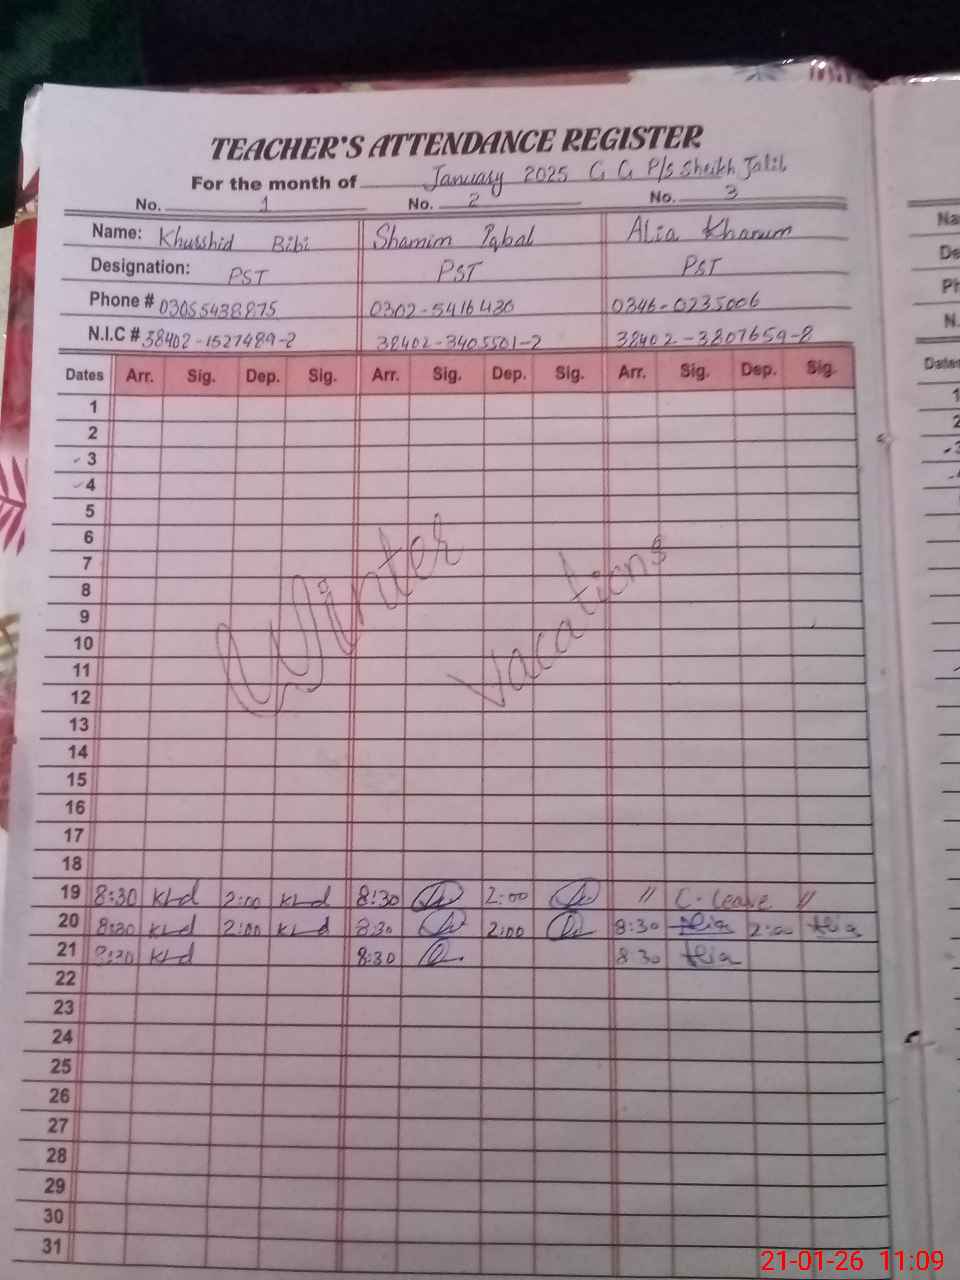 TEACHER'S ATTENDANCE REGISTER
For the month of January 2025 G G P/s Sheikh Jalil
No. 1 No. 2 No. 3
Name: Khurshid Bibi Shamim Iqbal Alia Khanum
Designation: PST PST PST
Phone # 03055438875 0302-5416430 0346-0235006
N.I.C # 38402-1527489-2 38402-3405501-2 38402-3807659-8
Dates Arr. Sig. Dep. Sig. Arr. Sig. Dep. Sig. Arr. Sig. Dep. Sig.
1
2
3
4
5
6
7
8
9
10
11
12
13
14
15
16
17
18
Winter vacations
19 8:30 Khd 2:00 Khd 8:30 2:00 // C. Leave //
20 8:30 Khd 2:00 Khd 8:30 2:00 8:30 Alia 2:00 Alia
21 8:30 Khd 8:30 8:30 Alia
22
23
24
25
26
27
28
29
30
31
Na
De
Ph
N.
Dates
1
2
21-01-26 11:09